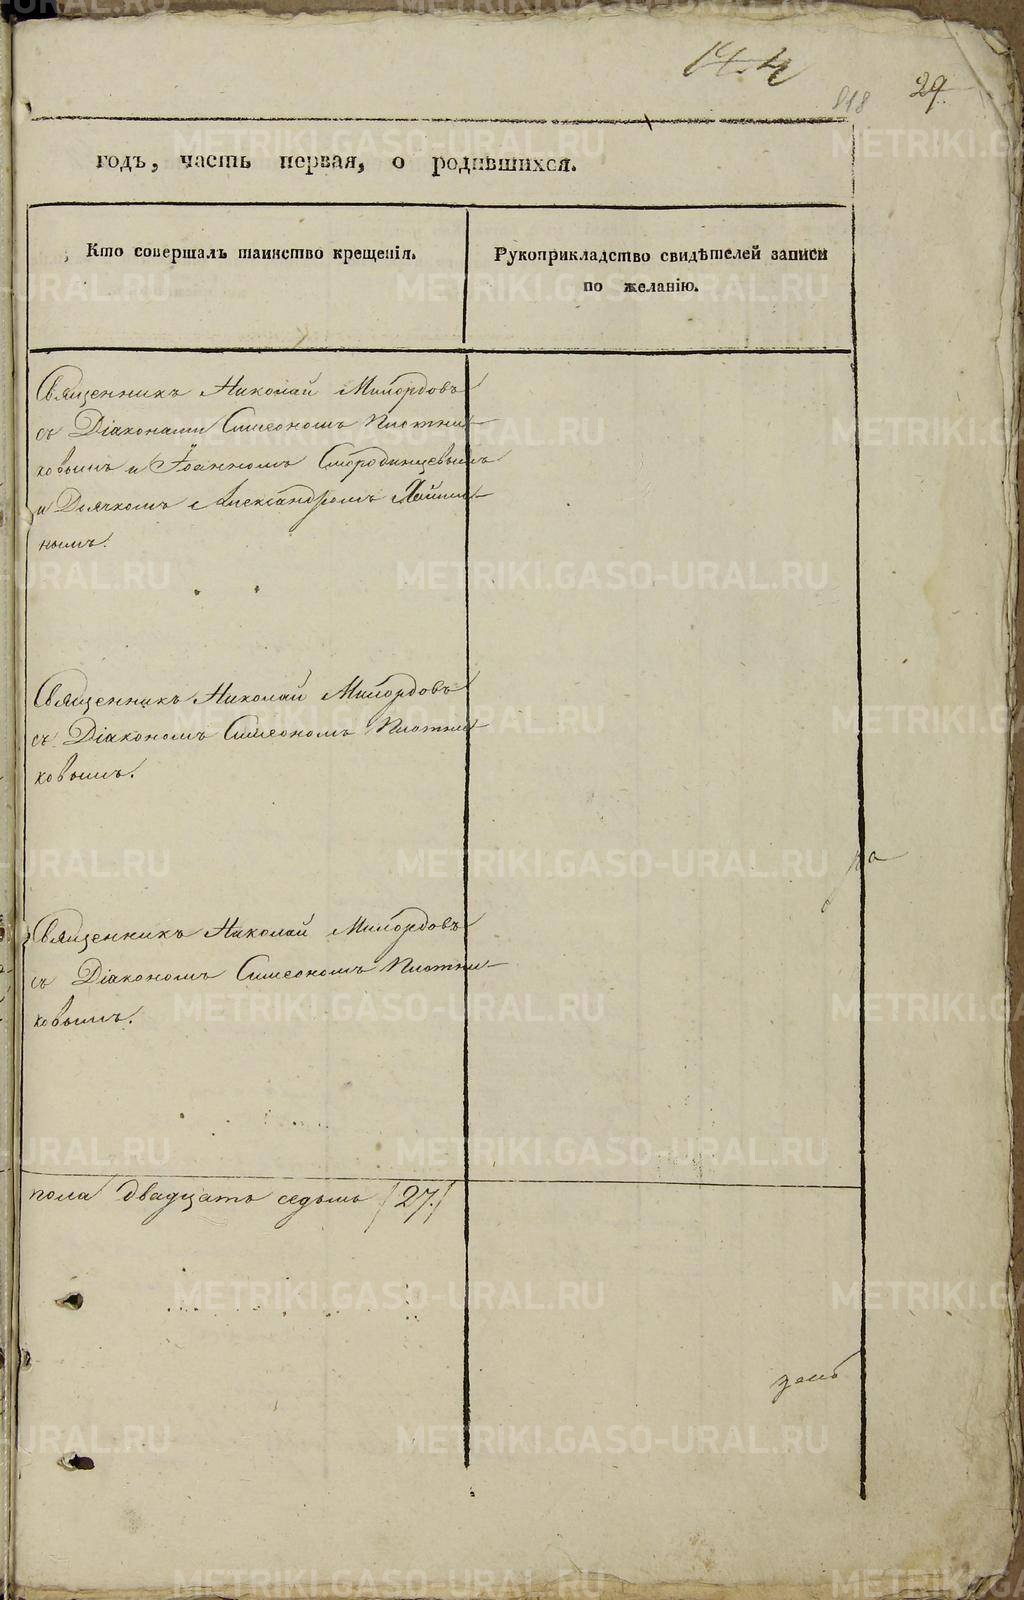 818
29.
годъ, часть первая, о родившихся.
Кто совершалъ таинство крещенія.
Рукоприкладство свидѣтелей записи
по желанію.
Священникъ Николай Милордовъ
съ Діаконами Симеономъ Плотни-
ковымъ и Іоанномъ Смородинцевымъ
и Дьячкомъ Александромъ
нымъ.
Священникъ Николай Милордовъ
съ Діакономъ Симеономъ Плотни-
ковымъ.
Священникъ Николай Милордовъ
съ Діакономъ Симеономъ Плотни-
ковымъ.
пола двадцать седьмь /27./
METRIKI.GASO-URAL.RU